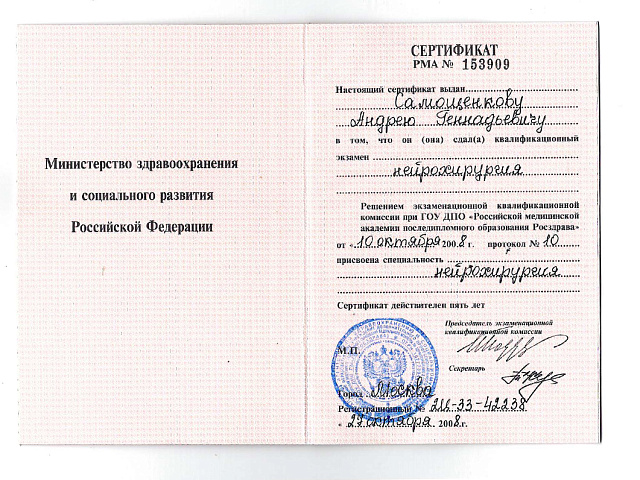 Министерство здравоохранения
и социального развития
Российской Федерации
СЕРТИФИКАТ
РМА № 153909
Настоящий сертификат выдан
Самощенкову
Андрею Геннадьевичу
в том, что он (она) сдал(а) квалификационный
экзамен
нейрохирургия
Решением экзаменационной квалификационной
комиссии при ГОУ ДПО «Российской медицинской
академии последипломного образования Росздрава»
от « 10 октября 2008 г. протокол № 10
присвоена специальность
нейрохирургия
Сертификат действителен пять лет
Председатель экзаменационной
квалификационной комиссии
М.П.
Секретарь
Город Москва
Регистрационный № 2Ц-33-42238
« 29 октября 2008 г.